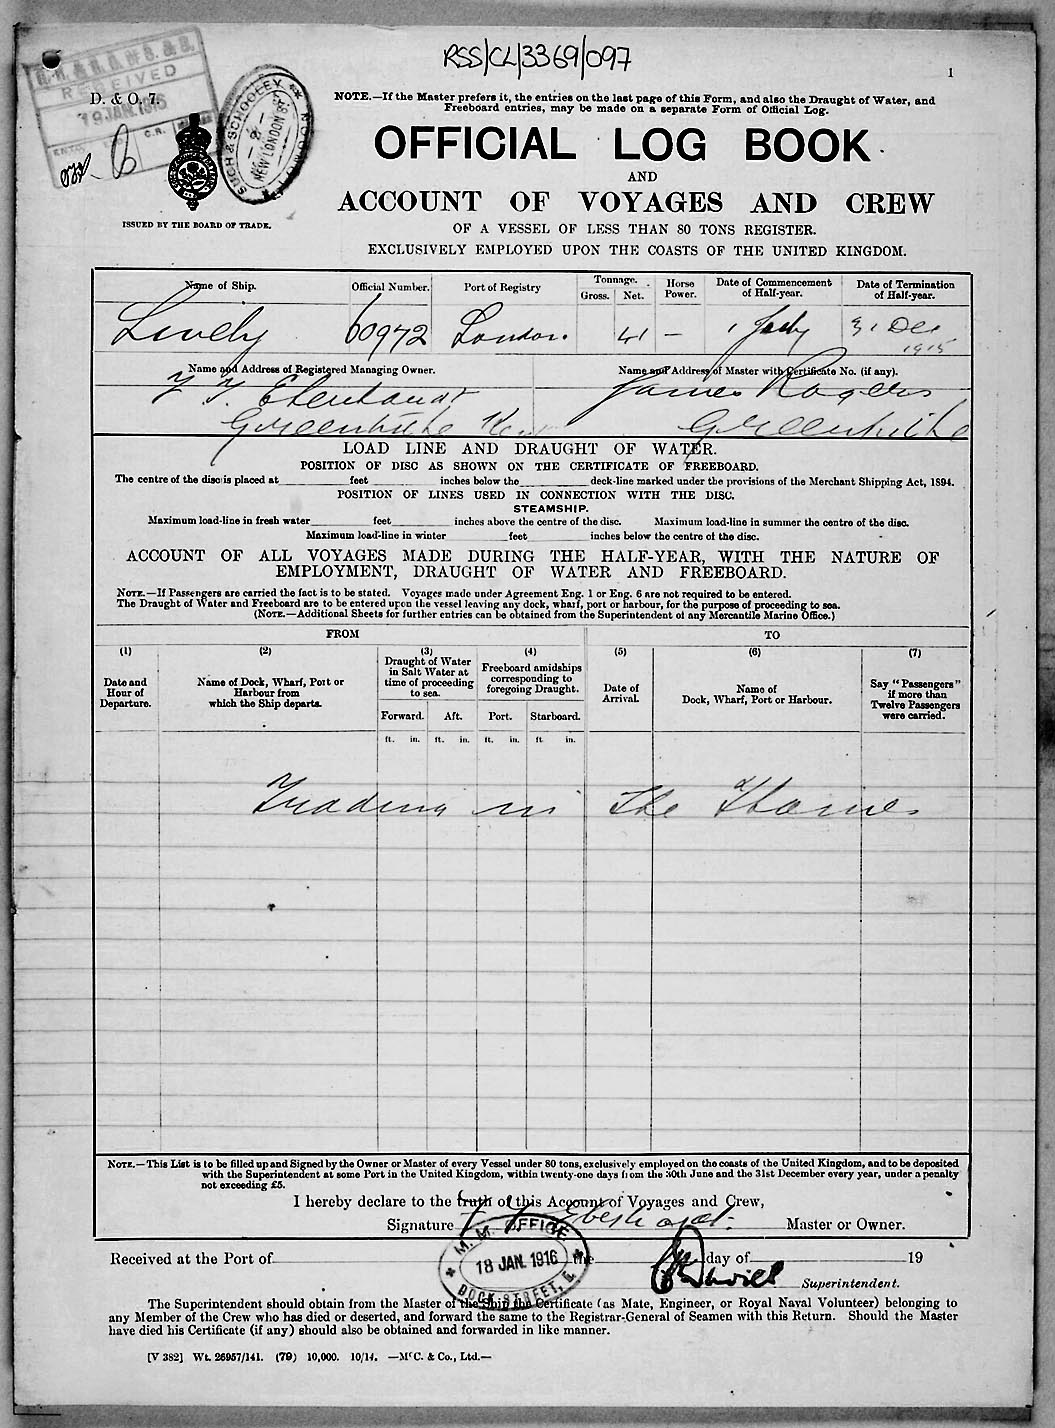 RSS/CL/3369/097
1
RECEIVED
19 JAN. 1916
C.R.
D. & O. 7.
SUCH & SCHOOLEY
NEW LONDON ST
ISSUED BY THE BOARD OF TRADE.
NOTE.—If the Master prefers it, the entries on the last page of this Form, and also the Draught of Water, and
Freeboard entries, may be made on a separate Form of Official Log.
OFFICIAL LOG BOOK
AND
ACCOUNT OF VOYAGES AND CREW
OF A VESSEL OF LESS THAN 80 TONS REGISTER.
EXCLUSIVELY EMPLOYED UPON THE COASTS OF THE UNITED KINGDOM.
Name of Ship. Official Number. Port of Registry Tonnage. Gross. Net. Horse Power. Date of Commencement of Half-year. Date of Termination of Half-year.
Lively 60972 London. 41 — 1 July 31 Dec
1915
Name and Address of Registered Managing Owner. Name and Address of Master with Certificate No. (if any).
Eberhardt James Rogers
Greenhithe Greenhithe
LOAD LINE AND DRAUGHT OF WATER.
POSITION OF DISC AS SHOWN ON THE CERTIFICATE OF FREEBOARD.
The centre of the disc is placed at feet inches below the deck-line marked under the provisions of the Merchant Shipping Act, 1894.
POSITION OF LINES USED IN CONNECTION WITH THE DISC.
STEAMSHIP.
Maximum load-line in fresh water feet inches above the centre of the disc. Maximum load-line in summer the centre of the disc.
Maximum load-line in winter feet inches below the centre of the disc.
ACCOUNT OF ALL VOYAGES MADE DURING THE HALF-YEAR, WITH THE NATURE OF
EMPLOYMENT, DRAUGHT OF WATER AND FREEBOARD.
NOTE.—If Passengers are carried the fact is to be stated. Voyages made under Agreement Eng. 1 or Eng. 6 are not required to be entered.
The Draught of Water and Freeboard are to be entered upon the vessel leaving any dock, wharf, port or harbour, for the purpose of proceeding to sea.
(NOTE.—Additional Sheets for further entries can be obtained from the Superintendent of any Mercantile Marine Office.)
FROM TO
(1) (2) (3) (4) (5) (6) (7)
Date and Hour of Departure.
Name of Dock, Wharf, Port or Harbour from which the Ship departs.
Draught of Water in Salt Water at time of proceeding to sea.
Freeboard amidships corresponding to foregoing Draught.
Date of Arrival.
Name of Dock, Wharf, Port or Harbour.
Say "Passengers" if more than Twelve Passengers were carried.
Forward. Aft. Port. Starboard.
ft. in. ft. in. ft. in. ft. in.
Trading in the Thames
NOTE.—This List is to be filled up and Signed by the Owner or Master of every Vessel under 80 tons, exclusively employed on the coasts of the United Kingdom, and to be deposited
with the Superintendent at some Port in the United Kingdom, within twenty-one days from the 30th June and the 31st December every year, under a penalty
not exceeding £5.
I hereby declare to the truth of this Account of Voyages and Crew,
Signature Eberhardt. Master or Owner.
Received at the Port of the day of 19
M. M. OFFICE
18 JAN. 1916
DOCK STREET, E.
Superintendent.
The Superintendent should obtain from the Master of the Ship the Certificate (as Mate, Engineer, or Royal Naval Volunteer) belonging to
any Member of the Crew who has died or deserted, and forward the same to the Registrar-General of Seamen with this Return. Should the Master
have died his Certificate (if any) should also be obtained and forwarded in like manner.
[V 382] Wt. 26957/141. (79) 10,000. 10/14. —McC. & Co., Ltd.—